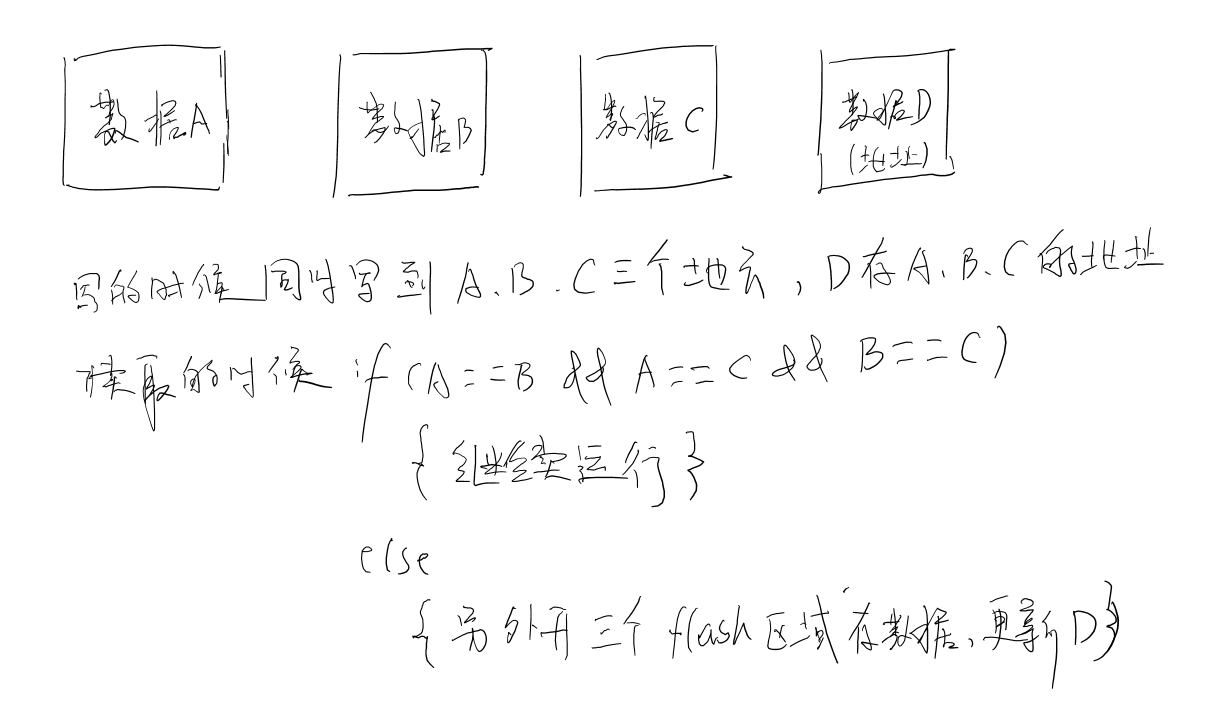 数据A 数据B 数据C 数据D
(地址)
写的时候同时写到A.B.C三个地方,D存A.B.C的地址
读取的时候 if (A==B && A==C && B==C)
{继续运行}
else
{另外开三个flash区域存数据,更新D}